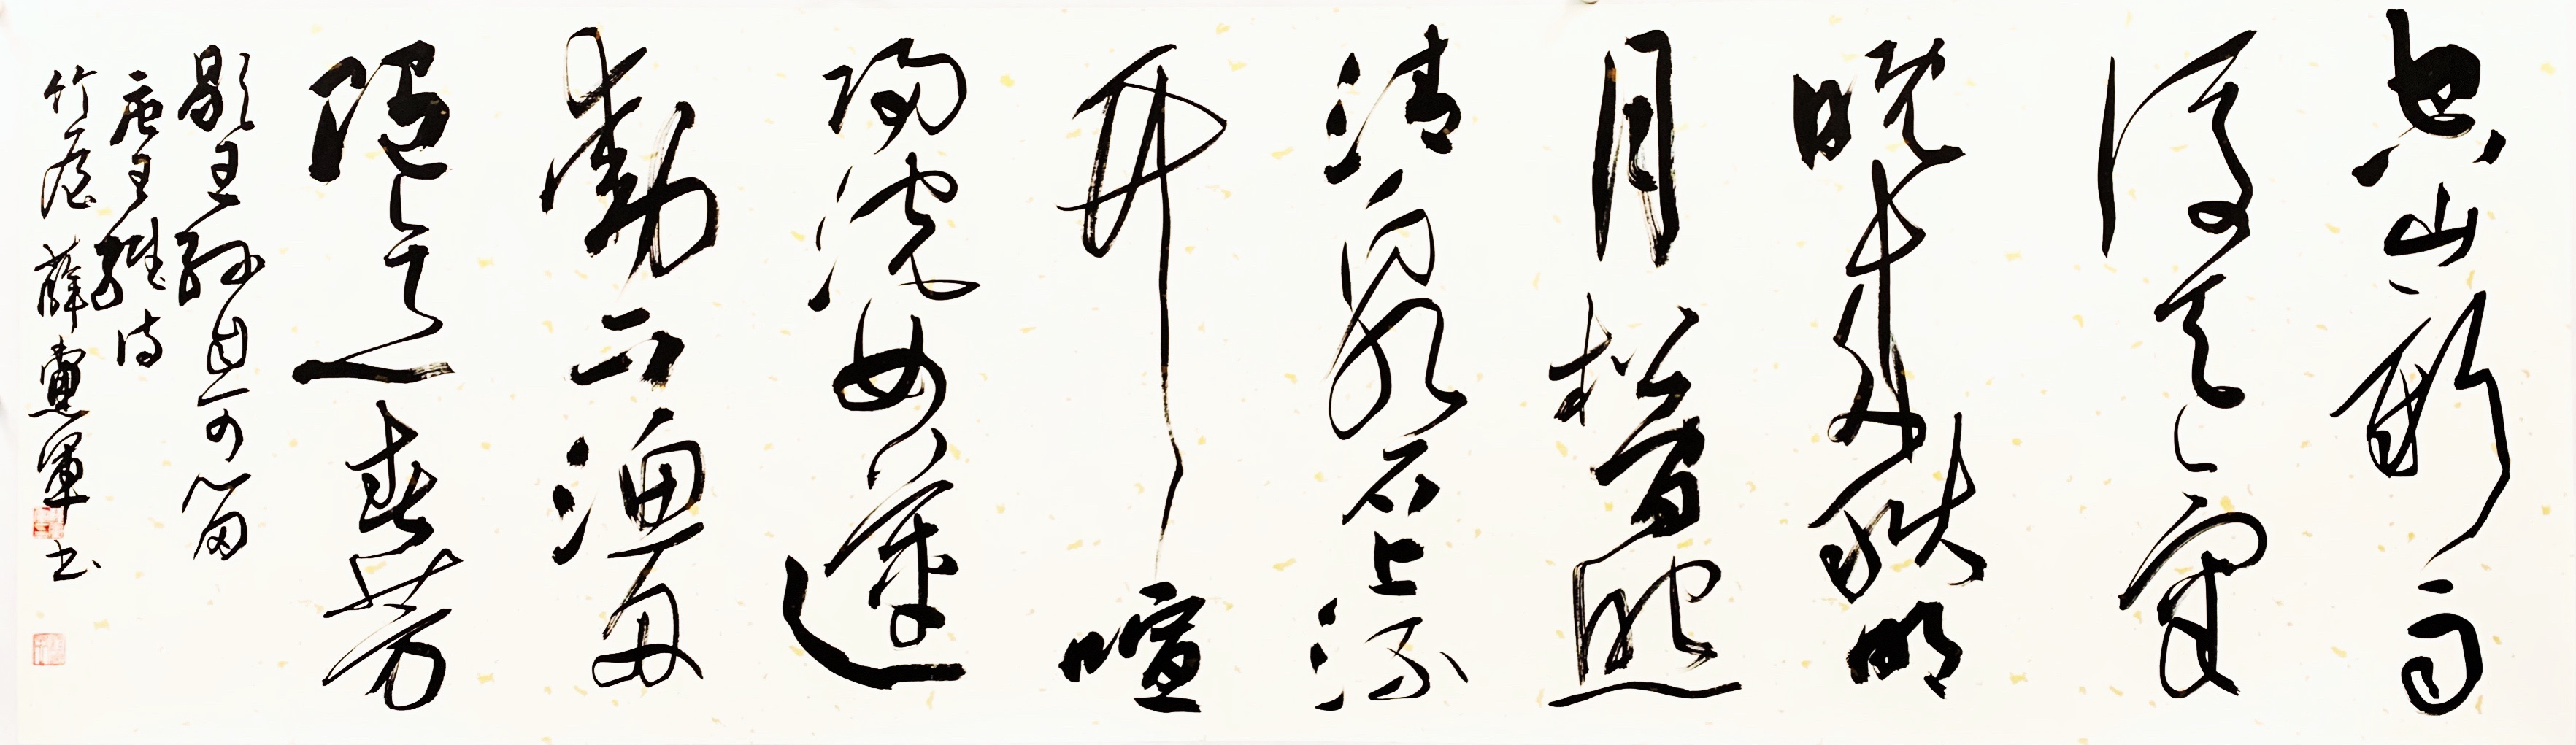 空山新雨
後天氣
晚来秋明
月松間照
清泉石上流
竹喧
歸浣女蓮
動下漁舟
随意春芳
歇王孫自可留
唐王維诗
竹庵薛軍书